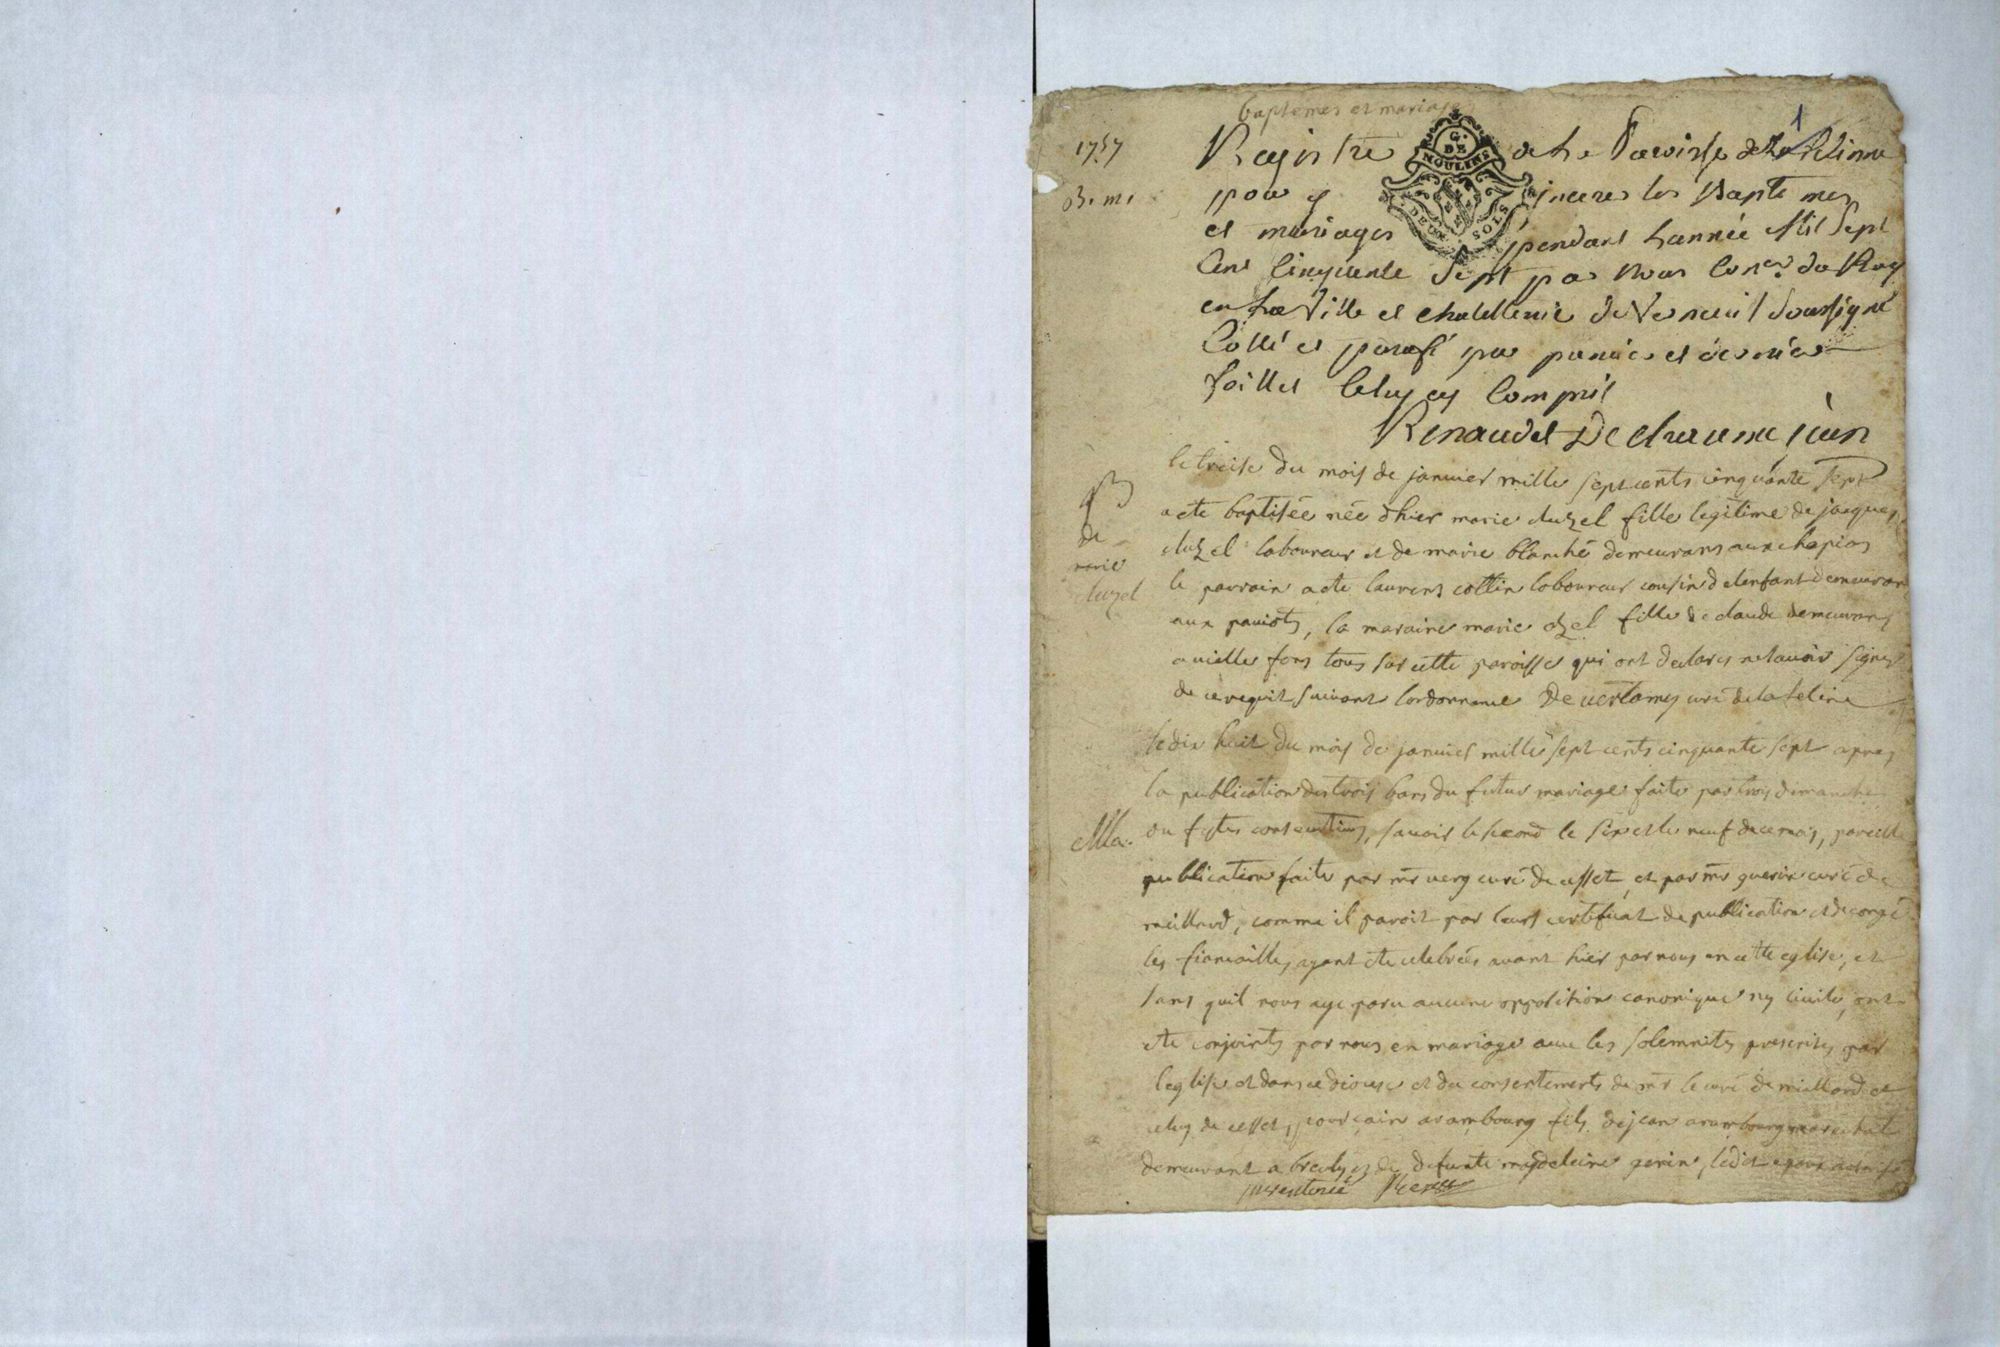 baptemes et mariages
1
1757
B. m.
G. DE MOULINS DEUX SOLS
Registre de La Paroisse de La Feline
pour y incerer les Baptemes
et mariages pendant Lannée Mil Sept
Cens Cinquente Sept par Nous Coner. du Roy
en La Ville et chatellenie de Verneuil Soussigné
Cotté et paraffé par premier et dernier
feuillet Celuy cy Compris
Renaudet De
B
de
marie
cluzel
le treise du mois de janvier mille sept cents cinquante sept
a ete baptisée née dhier marie cluzel fille legitime de jacques
cluzel laboureur et de marie blanché demeurans aux chapios
le parrain a ete laurens collin laboureur cousin de lenfant demeurant
aux pauiots, la maraine marie fille de claude demeurans
a vielle fons tous sur cette paroisse qui ont declares ne savoir signer
de ce requit suivant lordonnance De vertamy curé de la feline
Ma.
le dix huit du mois de janvier mille sept cents cinquante sept apres
la publication des trois bans du futur mariage faite par trois dimanche
ou festes consecutives, savoir le second le six et le neuf de ce mois, pareille
publication faite par mr very curé de cesset, et par mr guerin curé de
meillard, comme il paroit par leurs certificat de publication et de congé
les fiancailles ayant ete celebrées avant hier par nous en cette eglise, et
sans quil nous aye paru aucune opposition canonique ny civile, ont
ete conjoints par nous en mariage avec les solemnites prescrites par
leglise et dans ce diocese et du consentements de mr le curé de miellard et
celuy de cesset, pourcain arambourg fils de jean arambourg marechal
demeurant a breuly et de defunte magdeleine genin, ledit